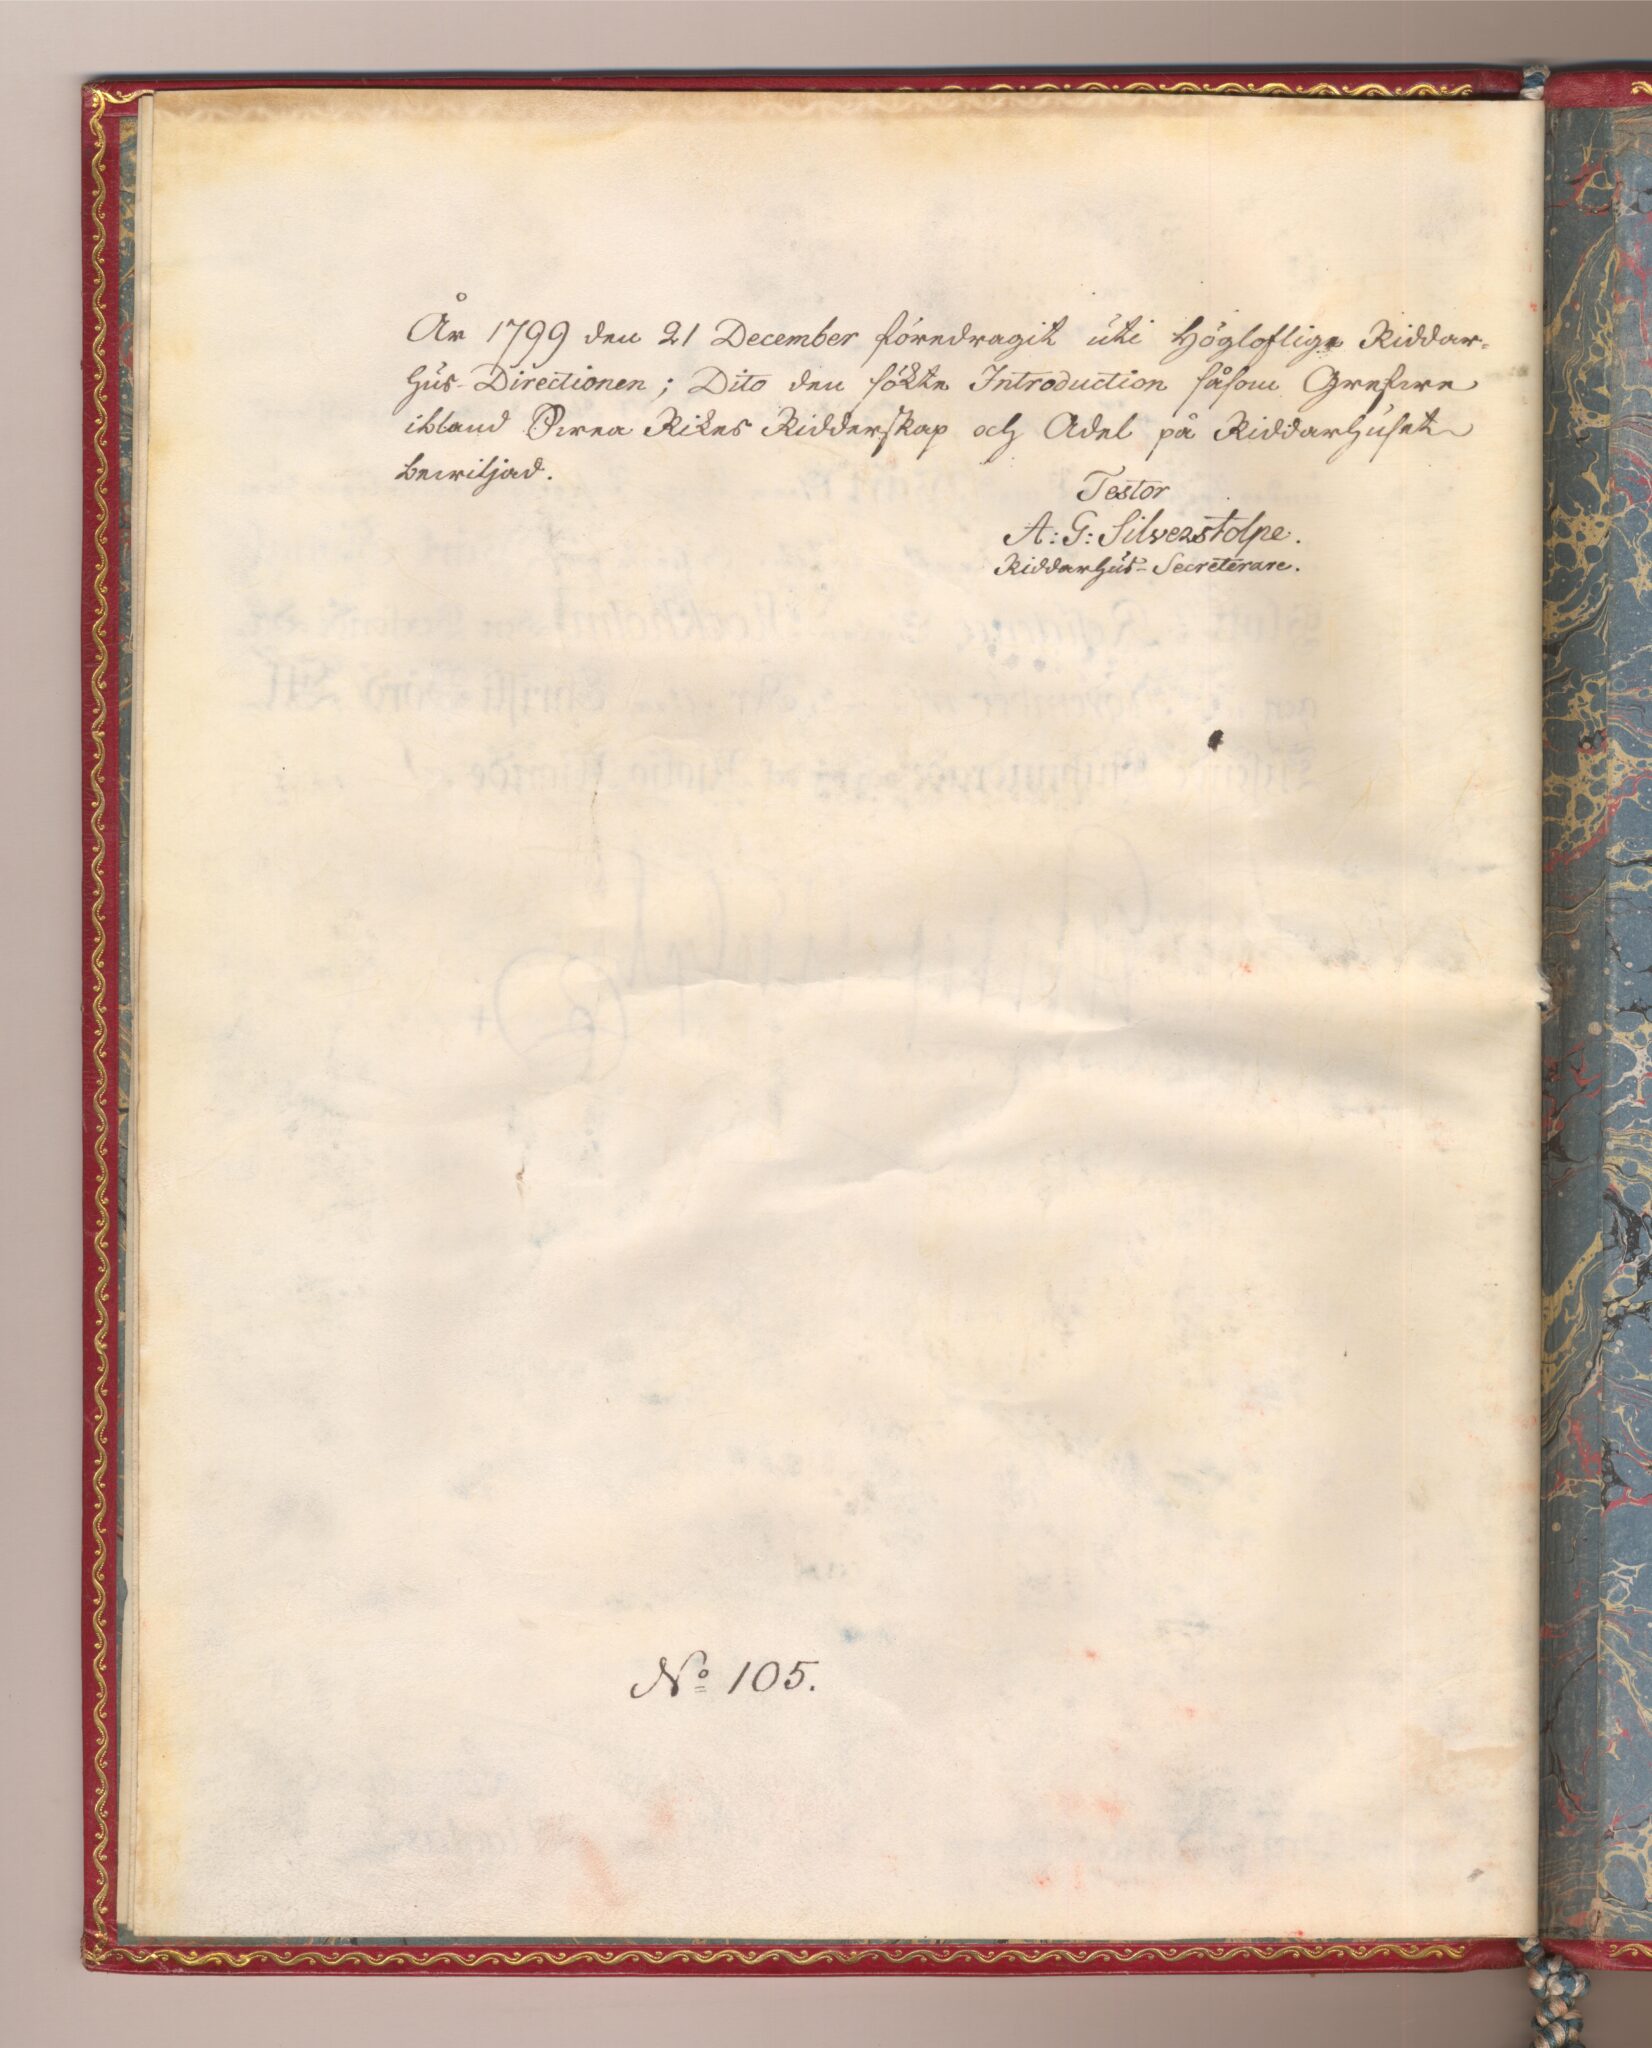 År 1799 den 21 December föredragit uti Högloflige Riddar-
hus-Directionen; Dito den sökte Introduction såsom Grefwe
ibland Swea Rikes Ridderskap och Adel på Riddarhuset
bewiljad.
Testor
A: G: Silverstolpe.
Riddarhus-Secreterare.
No 105.